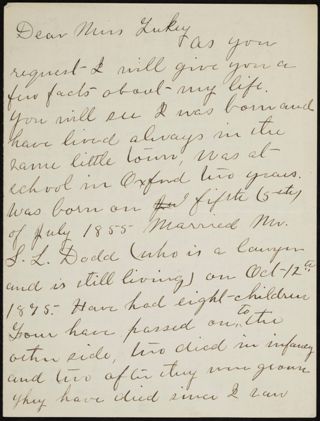 Dear Miss Lukey
As you
request I will give you a
few facts about my life.
You will see I was born and
have lived always in the
same little town, was at
school in Oxford two years.
Was born on the fifth (5-th)
of July 1855 Married Mr.
S. L. Dodd (who is a lawyer
and is still living) on Oct-12th
1875- Have had eight-children
Four have passed on to the
other side, two died in infancy
and two after they were grown
They have died since I